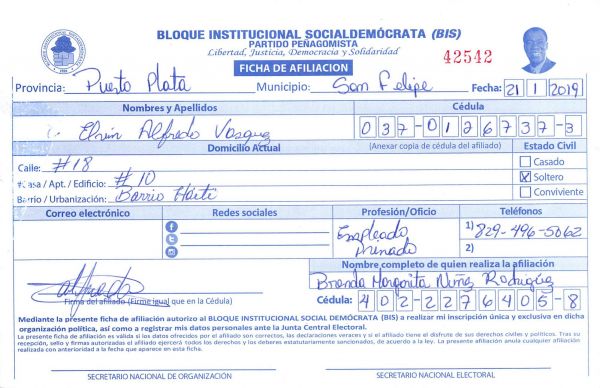 BLOQUE INSTITUCIONAL SOCIALDEMÓCRATA (BIS)
PARTIDO PEÑAGOMISTA
Libertad, Justicia, Democracia y Solidaridad
42542
FICHA DE AFILIACION
Provincia: Puerto Plata Municipio: San Felipe Fecha: 21 1 2019
Nombres y Apellidos Cédula
Elvin Alfredo Vasquez 037-0126737-3
Domicilio Actual (Anexar copia de cédula del afiliado) Estado Civil
Calle: #18 Casado
#Casa / Apt. / Edificio: #10 X Soltero
Barrio / Urbanización: Barrio Haití Conviviente
Correo electrónico Redes sociales Profesión/Oficio Teléfonos
Empleado 1) 829-496-5062
Privado 2)
Nombre completo de quien realiza la afiliación
Brenda Margarita Núñez Rodríguez
Firma del afiliado (Firme igual que en la Cédula) Cédula: 402-2276405-8
Mediante la presente ficha de afiliación autorizo al BLOQUE INSTITUCIONAL SOCIAL DEMÓCRATA (BIS) a realizar mi inscripción única y exclusiva en dicha
organización política, así como a registrar mis datos personales ante la Junta Central Electoral.
La presente ficha de afiliación es válida si los datos ofrecidos por el afiliado son correctos, las declaraciones veraces y si el afiliado tiene el disfrute de sus derechos civiles y políticos. Tras su
recepción, sello y firmas autorizadas el afiliado ejercerá todos los derechos y los deberes estatutariamente sancionados, de acuerdo a la ley. La presente afiliación anula cualquier afiliación
realizada con anterioridad a la fecha que aparece en esta ficha.
SECRETARIO NACIONAL DE ORGANIZACIÓN SECRETARIO NACIONAL ELECTORAL